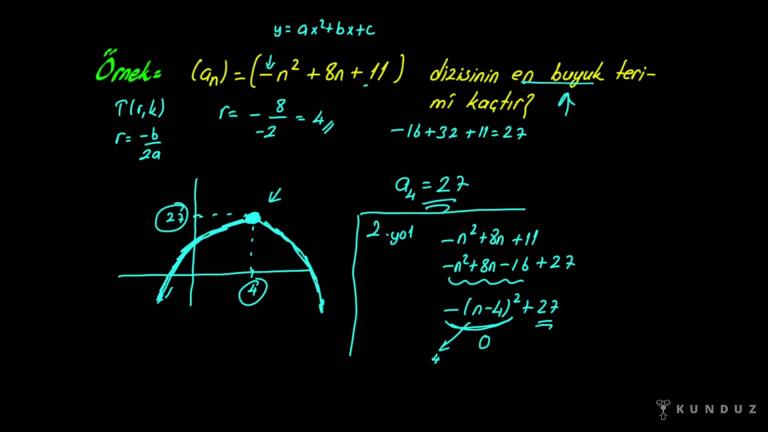 y = ax²+bx+c
Örnek= (aₙ) = (-n² + 8n + 11) dizisinin en buyuk teri-
mi kaçtır?
T(r,k)
r = -b/2a
r = - 8/-2 = 4
-16+32+11=27
a₄ = 27
27
4
2.yol
-n²+8n+11
-n²+8n-16+27
-(n-4)²+27
4
0
KUNDUZ